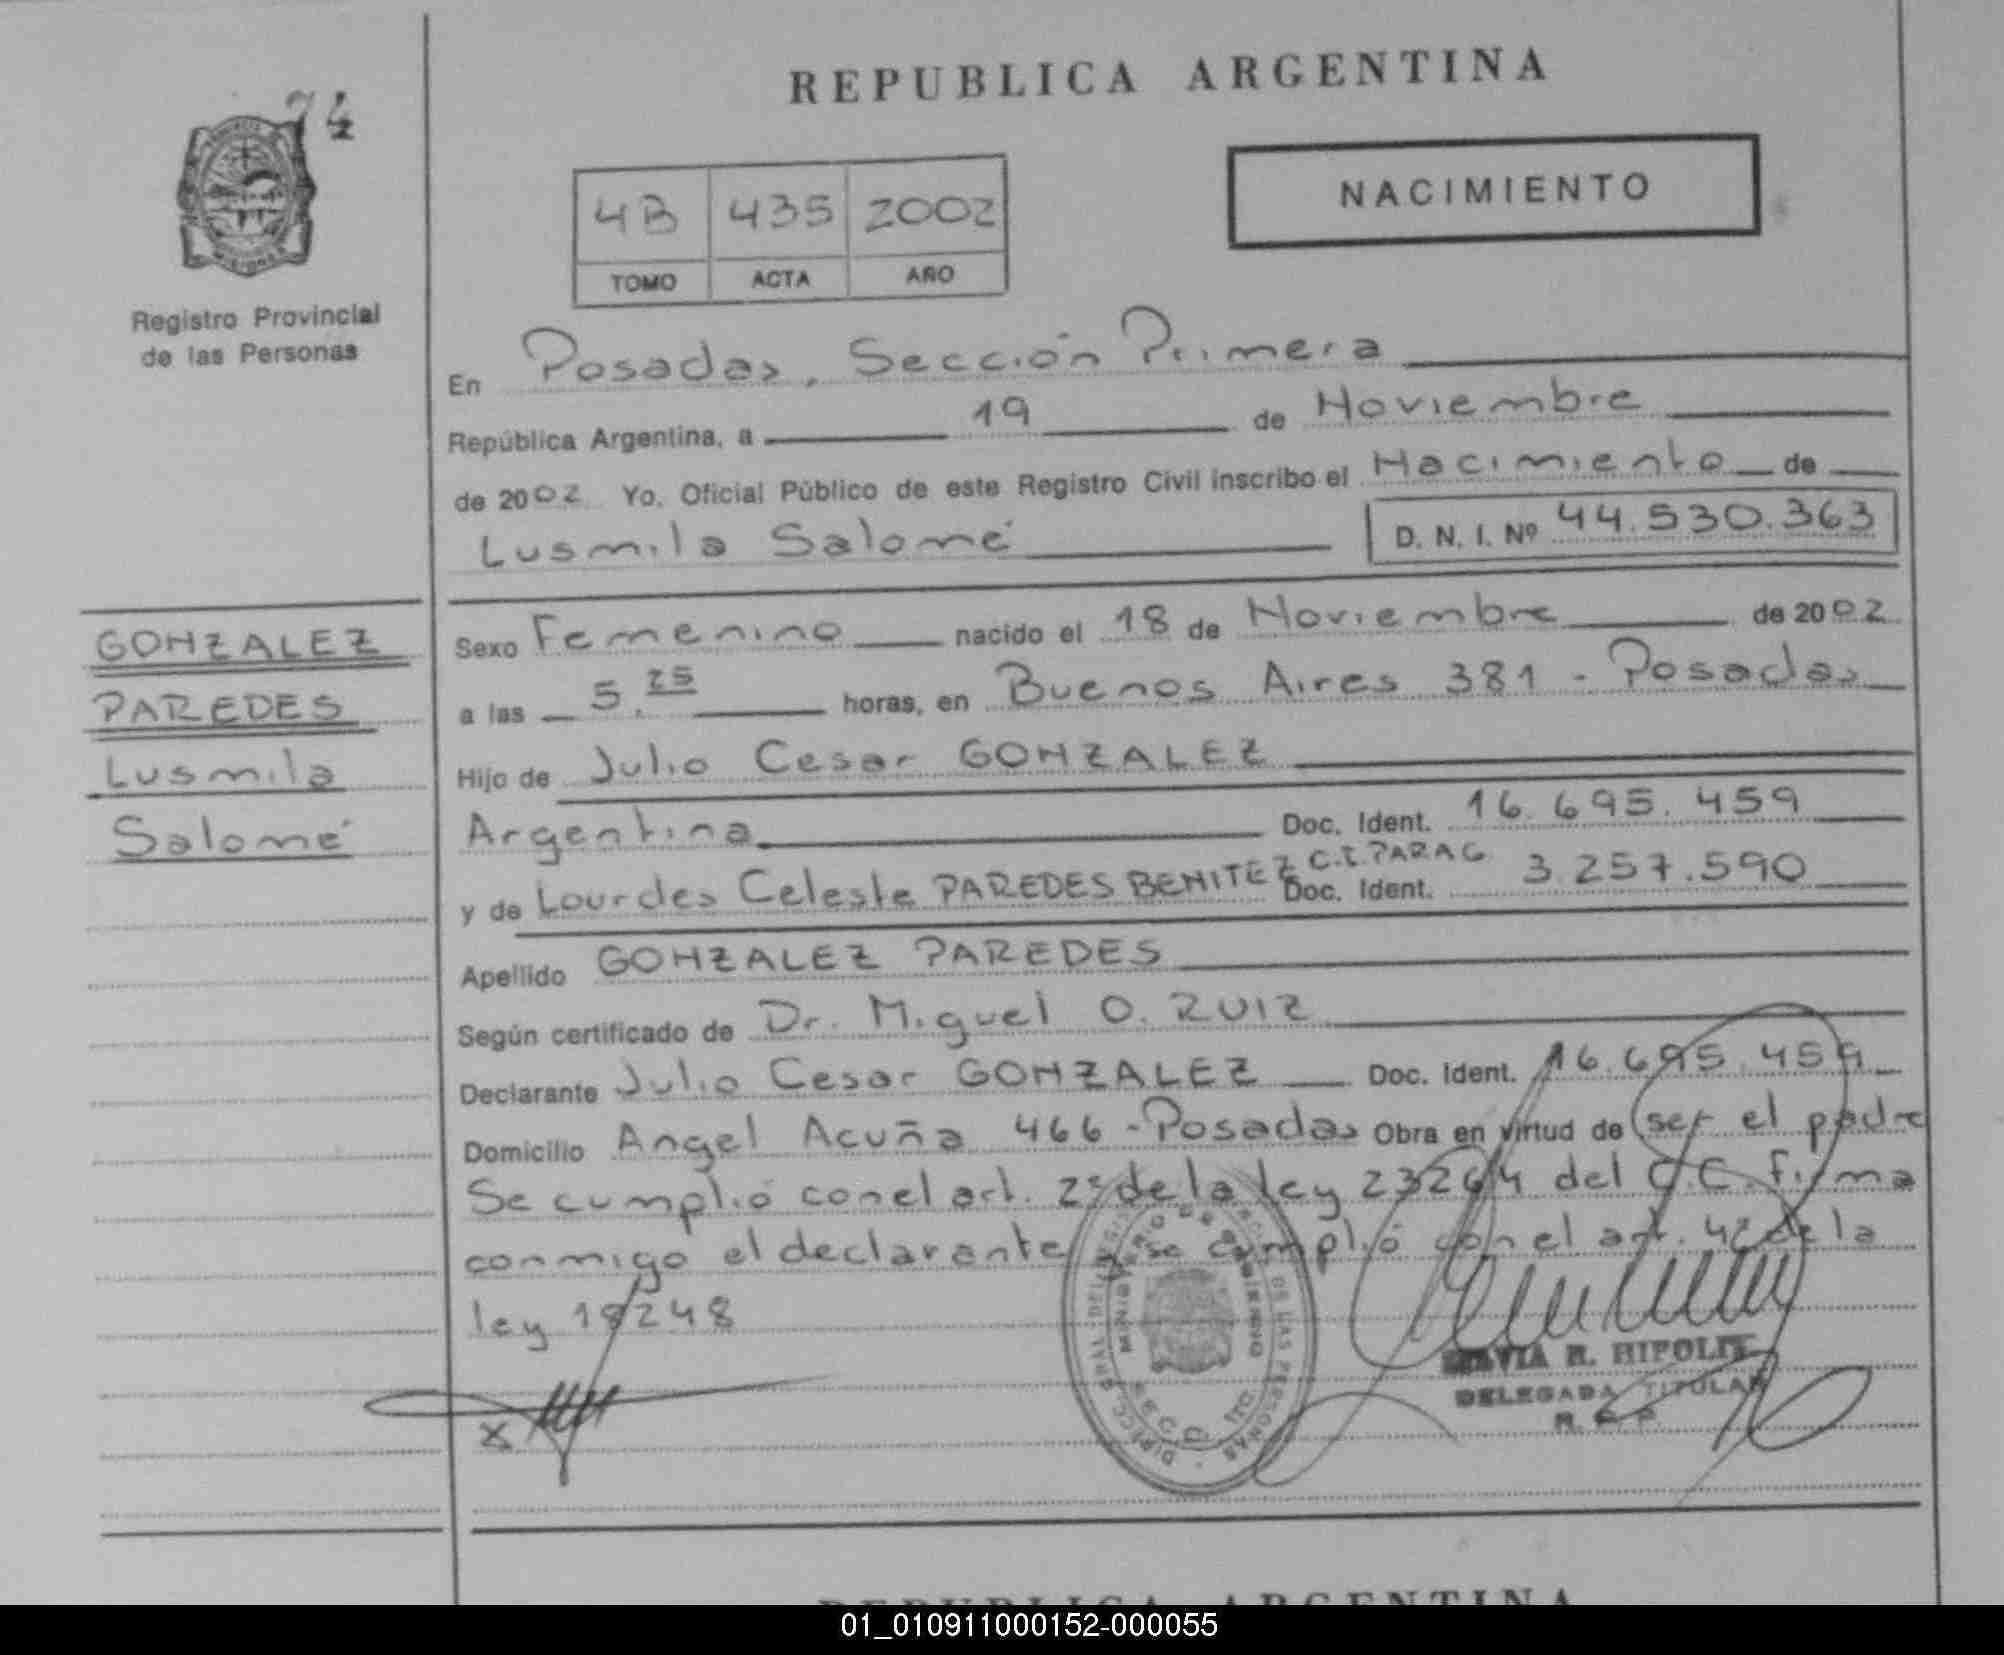 74
REPUBLICA ARGENTINA
NACIMIENTO
4B 435 2002
TOMO ACTA AÑO
Registro Provincial
de las Personas
En Posadas, Sección Primera
República Argentina, a 19 de Noviembre
de 2002 Yo, Oficial Público de este Registro Civil inscribo el Nacimiento de
Lusmila Salomé D. N. I. Nº 44.530.363
GONZALEZ
PAREDES
Lusmila
Salomé
Sexo Femenino nacido el 18 de Noviembre de 2002
a las 5.25 horas, en Buenos Aires 381 - Posadas
Hijo de Julio Cesar GONZALEZ
Argentina Doc. Ident. 16.695.459
y de Lourdes Celeste PAREDES BENITEZ C.I. PARAG. Doc. Ident. 3.257.590
Apellido GONZALEZ PAREDES
Según certificado de Dr. Miguel O. RUIZ
Declarante Julio Cesar GONZALEZ Doc. Ident. 16.695.459
Domicilio Angel Acuña 466 - Posadas Obra en virtud de ser el padre
Se cumplió con el art. 2º de la ley 23264 del C.C. firma
conmigo el declarante se cumplió con el art. 4º de la
ley 18248
x
MINISTERIO DE GOBIERNO
DE LAS PERSONAS
R. HIPOLIT
DELEGADA TITULAR
R. P. P.
REPUBLICA ARGENTINA
01_010911000152-000055